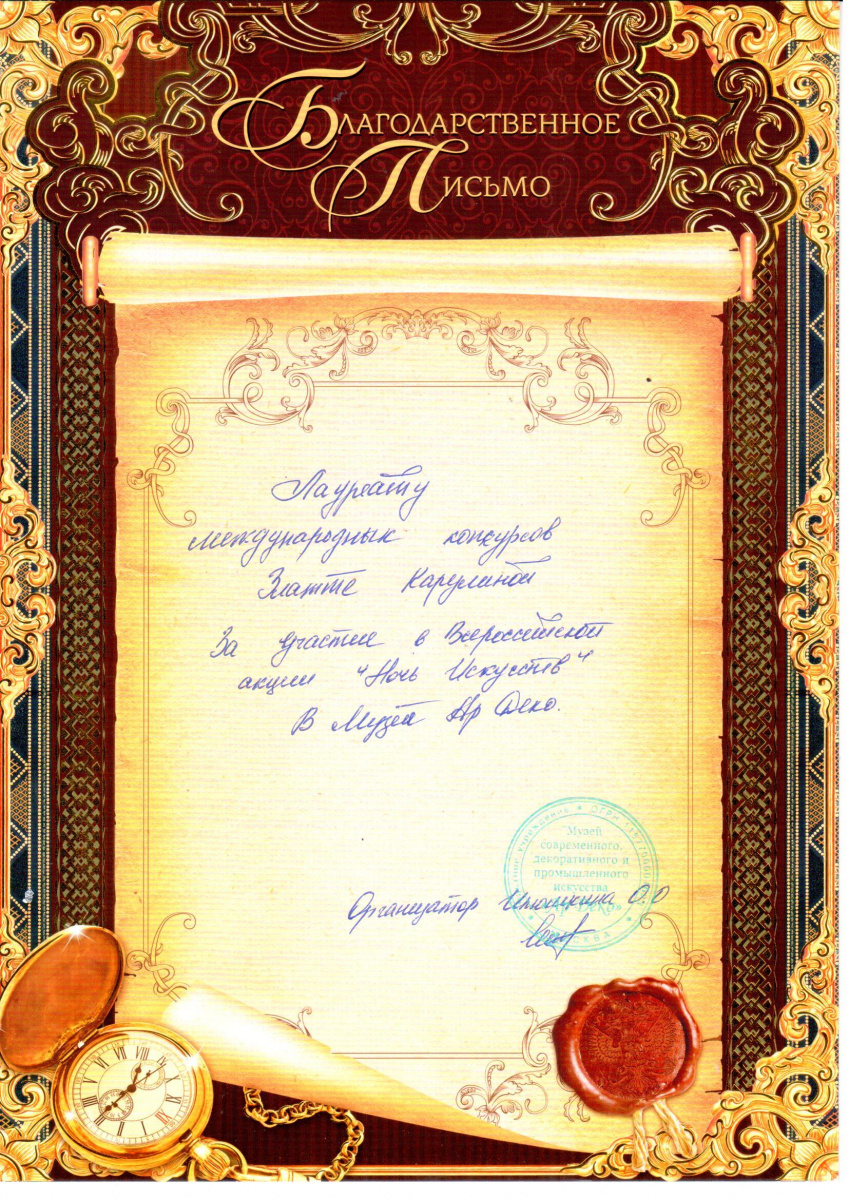 Благодарственное
Письмо
Лауреату
международных конкурсов
Златте Карелиной
За участие в Всероссийской
акции "Ночь Искусств"
В Музеи Ар Деко.
Музей
современного,
декоративного и
промышленного
искусства
«Ар Деко»
МОСКВА
Организатор Илюшкина О.О